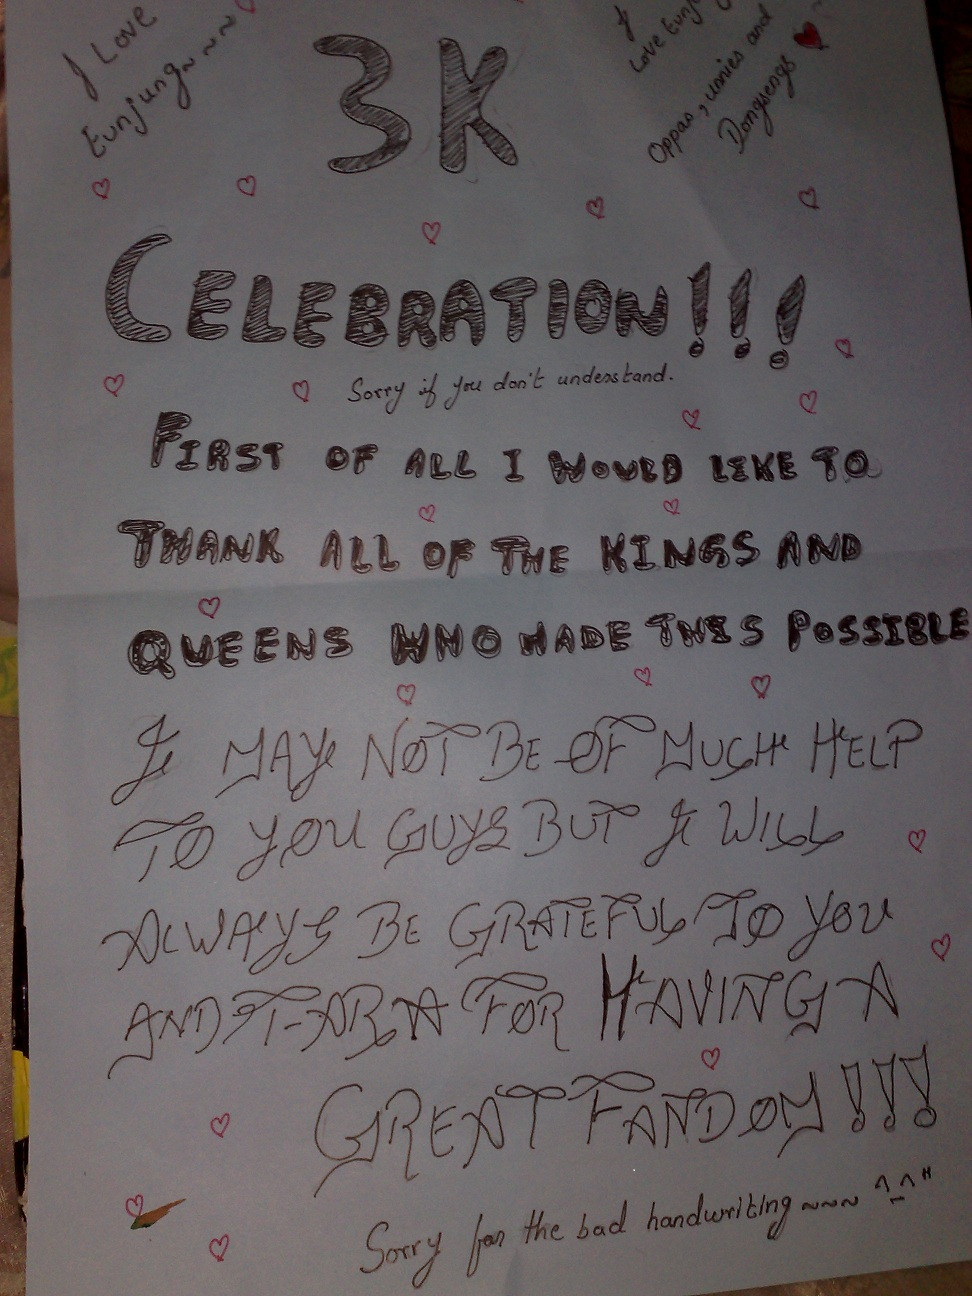 I Love
Eunjung~~~
I
Love Eunjung
Oppas, unnies and
Dongsengs
3K
CELEBRATION!!!
Sorry if you don't understand.
FIRST OF ALL I WOULD LIKE TO
THANK ALL OF THE KINGS AND
QUEENS WHO MADE THIS POSSIBLE
I MAY NOT BE OF MUCH HELP
TO YOU GUYS BUT I WILL
ALWAYS BE GRATEFUL TO YOU
AND T-ARA FOR HAVING A
GREAT FANDOM!!!
Sorry for the bad handwriting~~~~ ^_^"